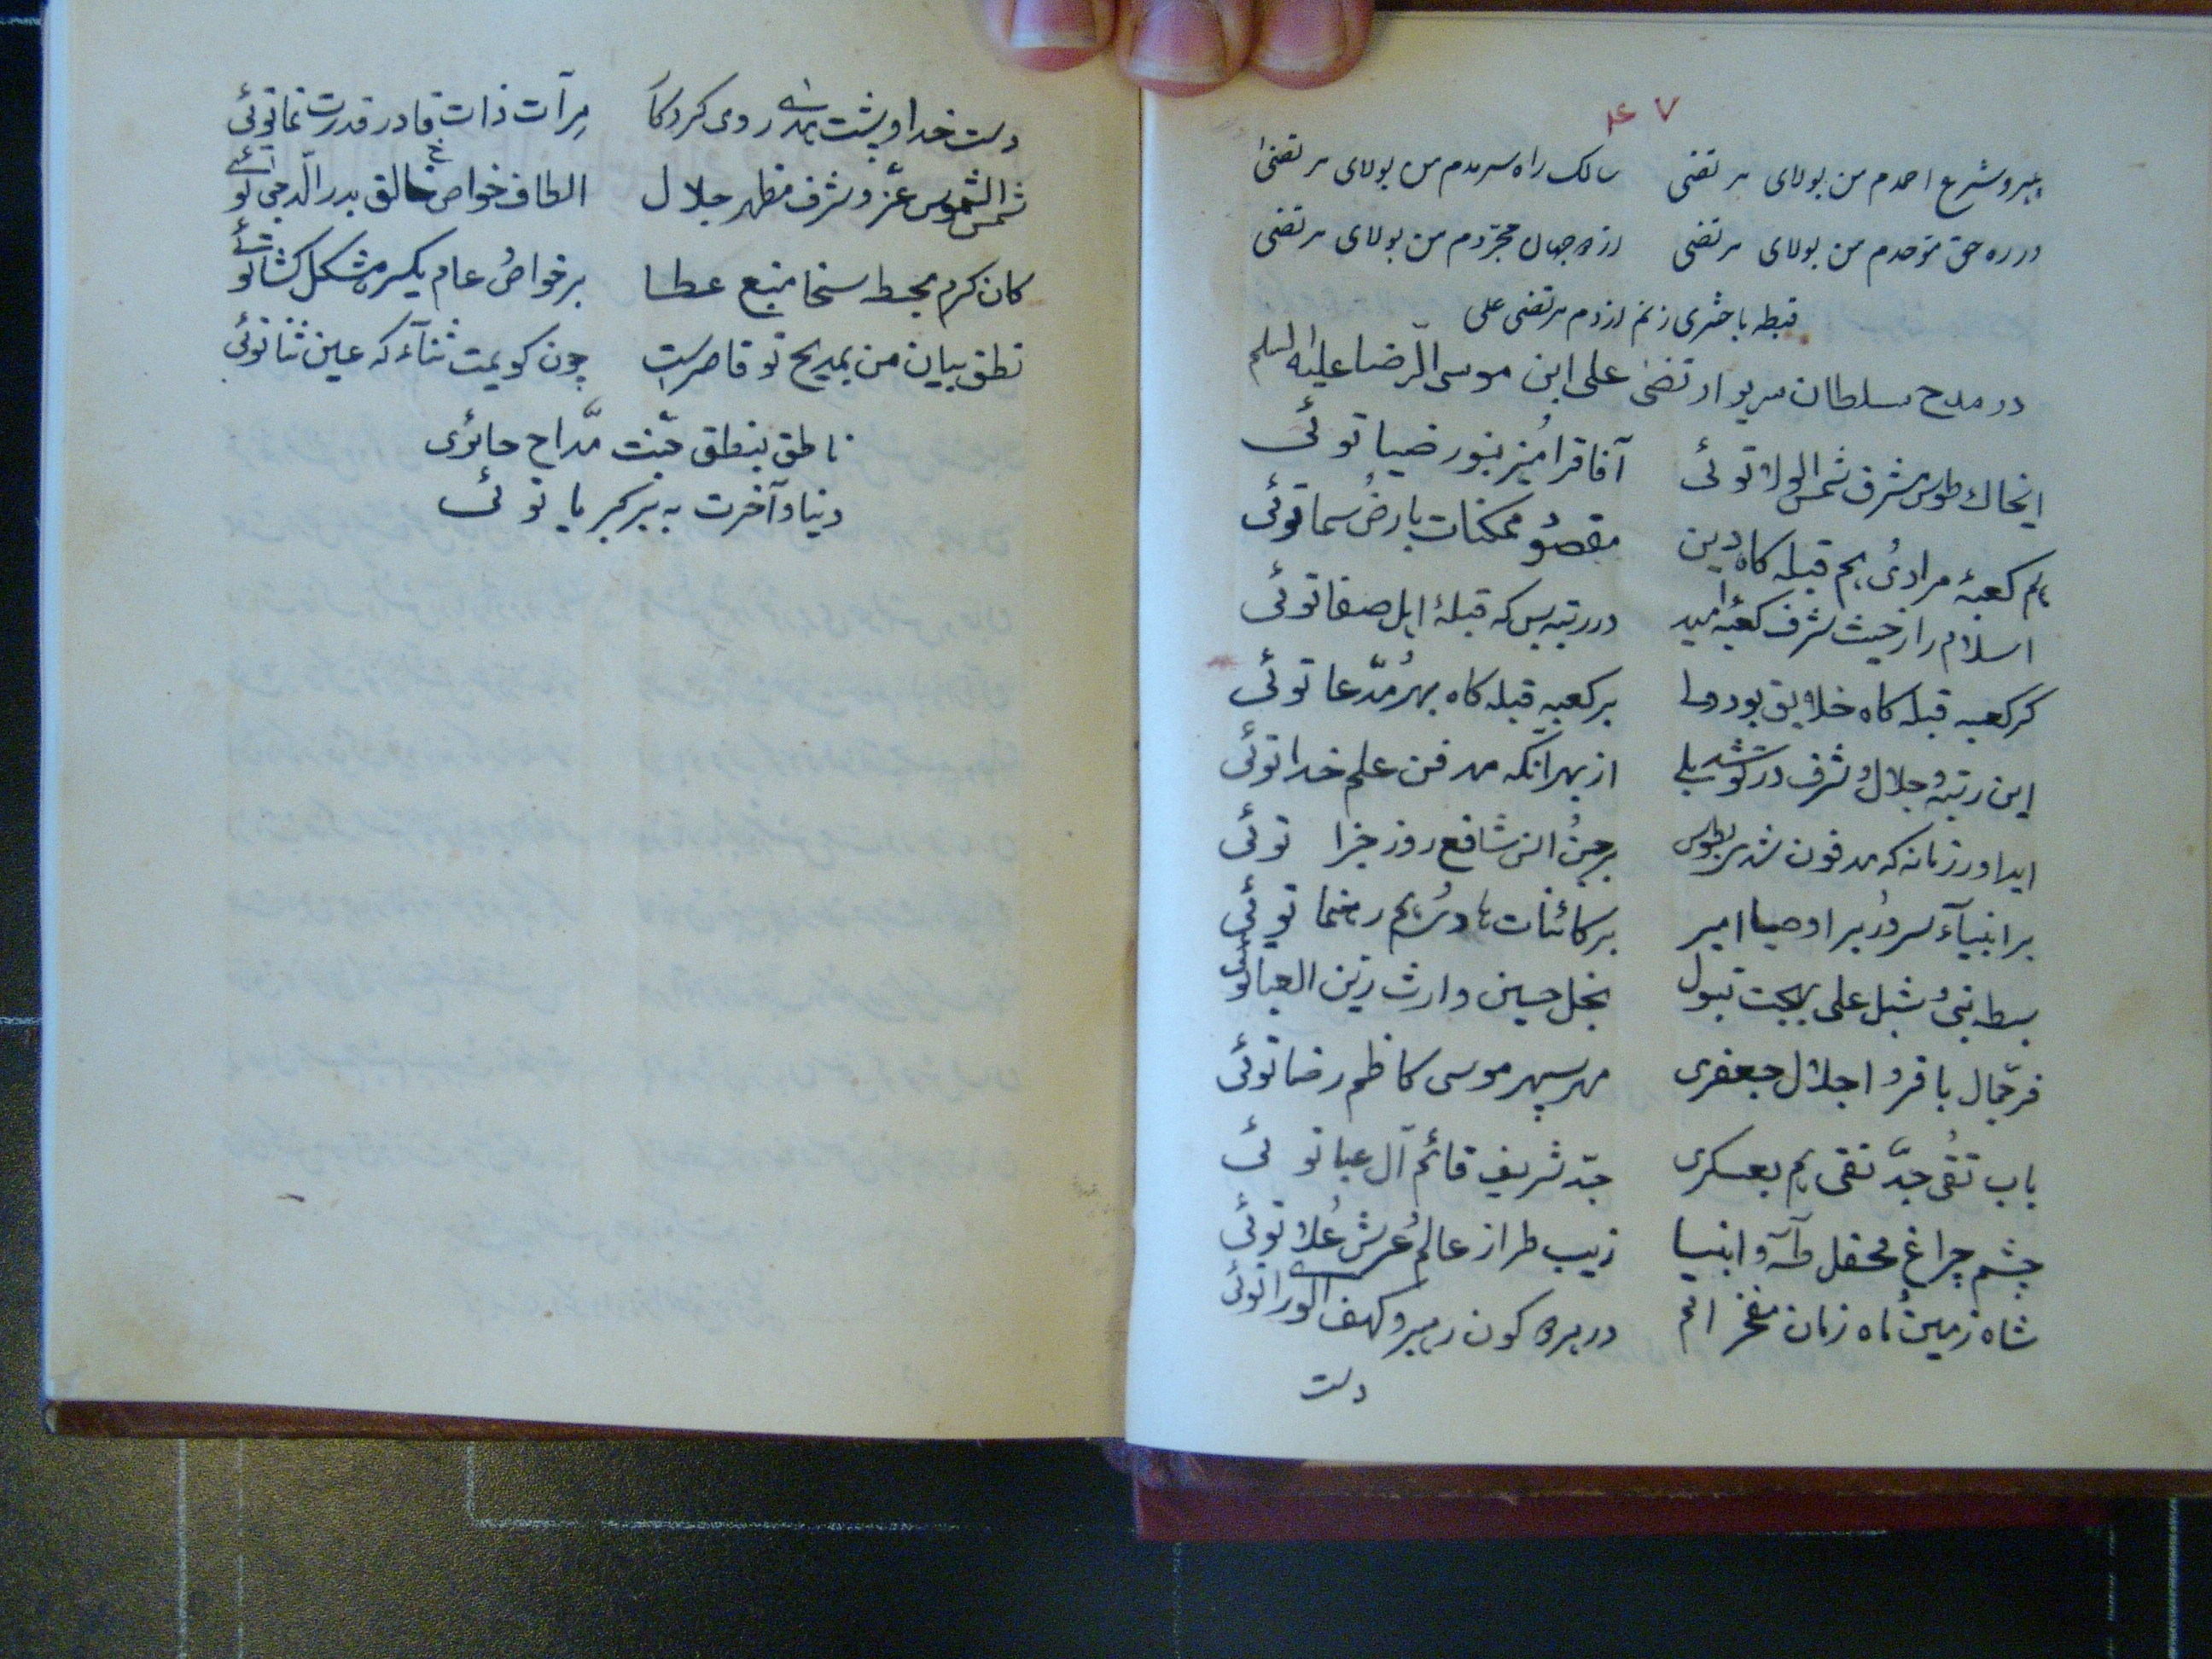 ۴۷
پیرو شرع احمدم من بولای مرتضی سالک راه سرمدم من بولای مرتضی
در ره حق موحدم من بولای مرتضی از دو جهان مجردم من بولای مرتضی
زنم از دم مرتضی علی
در مدح سلطان سریر ارتضی علی ابن موسی الرضا علیه السلم
ایخاك طوس مشرق شمس الولا توئی آفاقرا مُنیر بنور ضیا توئی
هم کعبهٔ مرادیُ هم قبله کاه دین مقصوُ ممکنات بارضُ سما توئی
اسلام را ز حیث شرف کعبهٔ امید در رتبه بس که قبلهٔ اهل صفا توئی
کر کعبه قبله کاه خلایق بود ولی بر کعبه قبله کاه بهرُ مدّعا توئی
این رتبهُ جلالُ شرف در تو شد بلی از بهر آنکه مدفن علم خدا توئی
ایداور زمانه که مدفون شدی بطوس بر جنُ انس شافع روز جزا توئی
بر انبیآء سرورُ بر اوصیا امیر بر کائنات هادیُ هم رهنما توئی
سبط نبیُ شبل علی بهجت بتول نجل حسین وارث زین العبا توئی
فرّ جمال باقرُ اجلال جعفری مهر سپهر موسی کاظم رضا توئی
باب تقیُ جدّ نقی هم بعسکری جدّ شریف قائم آل عبا توئی
چشم چراغ محفل طه و انبیا زیب طراز عالمُ عرش عُلا توئی
شاه زمینُ ماه زمان مفخر امم در هر دو کون رهبر و کهف الورا توئی
دست
دست خدا و پشت هدی روی کردکآ مِرآت ذات قادر قدرت نما توئی
شمس الشموس عزّ و شرف مظهر جلال الطاف خواص خالق بدر الدّجی توئی
کان کرم محیط سخا منبع عطا بر خواصُ عام یکسر مشکل کشا توئی
نطق بیان من بمدیح تو قاصر است چون کویمت ثنآء که عین ثنا توئی
ناطق بنطق حبّت مدّاح حایری
دنیا و آخرت به بر کبریا توئی